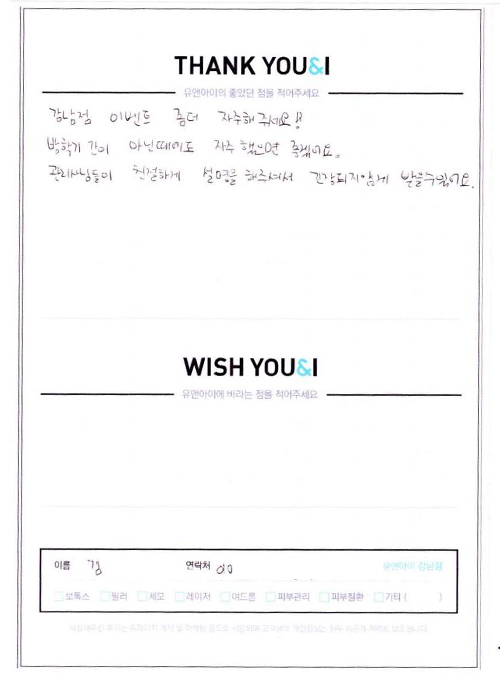 THANK YOU&I
유앤아이의 좋았던 점을 적어주세요
강남점 이벤트 좀더 자주해주세요!
방학기간이 아닌때에도 자주 했으면 좋겠어요.
관리사님들이 친절하게 설명을 해주셔서 긴장되지않게 받을수있어요.
WISH YOU&I
유앤아이에 바라는 점을 적어주세요
이름 김 연락처 010 유앤아이 강남점
보톡스 필러 제모 레이저 여드름 피부관리 피부질환 기타 ( )